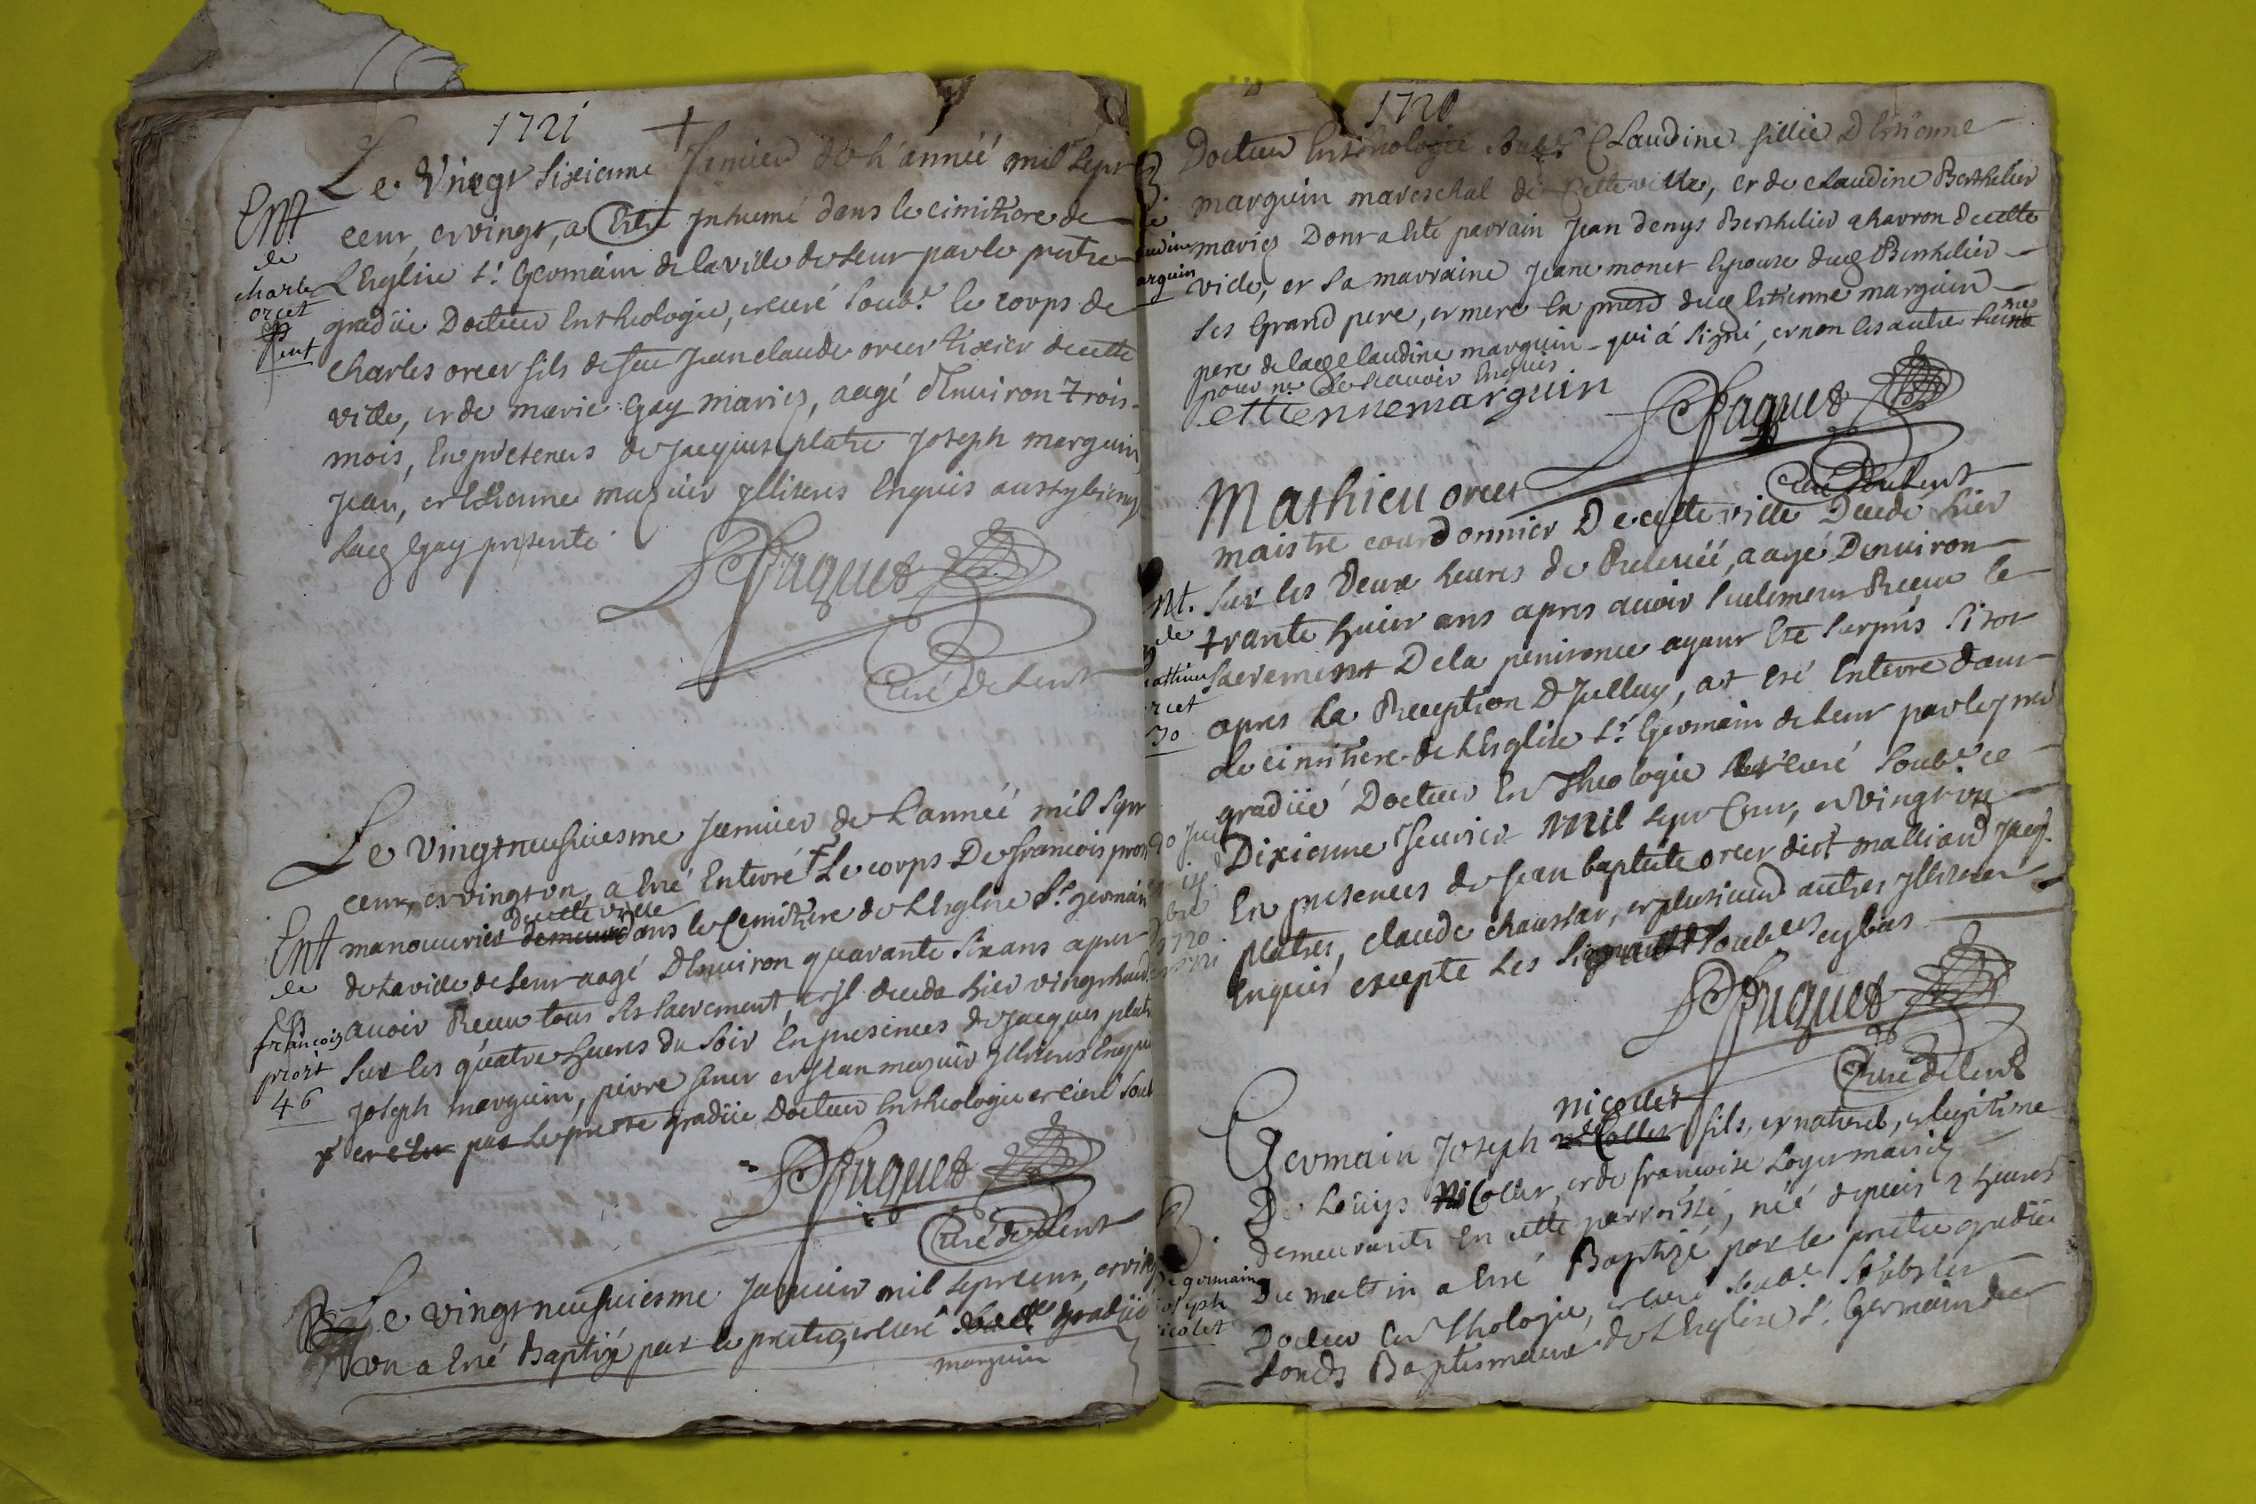 1721
Le vingt sixieme Janvier de l'année mil sept
Ent
de
charle
orcet
cent, et vingt, a esté Inhumé dans le cimitiere de
L'Esglise St. Germain de la ville de Lent par le pretre
gradüé Docteur En theologie, et curé soub.é le corps de
charles orcet fils de feu Jean claude orcet tixier de cette
ville, et de marie Gay mariez, aagé d'Environ trois
mois, En presences de Jacques platre Joseph marguin,
Jean, et Etienne mazuir Illiteres Enquis
Lad Gay presente
Paquet
Curé de Lent
Le vingt neufviesme Janvier de L'année mil sept
cent, et vingt un, a esté Enterré + Le corps De francois prost
de cette ville
Ent
de
francois
prost
46
manouvrier dans le Cemitiere de L'Esglise St. germain
de la ville de Lent aagé D'Environ quarante six ans apres
avoir Receu tous ses sacrement, et jl deceda hier vingt huict
sur les quatre heures du soir En presences de Jacques platre
Joseph marguin, et Jean mazuir Illiteres Enquis
+ par Le prestre gradüé Docteur En theologie et curé soub
Paquet
Curé de Lent
B
Le vingt neufviesme Janvier mil sept cent, et vingt
un a esté Baptizé par le pretre, et curé gradüé
marguin
1720
Docteur En theologie soub.é Claudine fille D'Etienne
marguin mareschal de Cette ville, et de claudine Berthelier
mariez Dont a esté parrain Jean denys Berthelier charron de cette
ville, et sa marraine Jeane monet Epouse dud Berthelier
ses Grand pere, et mere En presence dud Estienne marguin
pere de lad Claudine marguin qui á signé, et non les autre
pour ne le scavoir Enquis
ettienne marguin
Paquet
Curé de Lent
Mathieu orcet
maistre courdonnier De cette ville Decedé hier
sur les Deux heures de Relevéé, aagé D'environ
trante huict ans apres avoir seulement Receu le
sacrement De la penitence ayant Eté surpris sitot
Nt.
de
athieu
rcet
30
apres La Reception D'Jcelluy, at esté Enterré dans
le cimitiere de L'Esglise St. Germain de Lent par le
gradüé Docteur En Theologie et curé soub.é ce
Dixieme feuvrier Mil sept Cent, et vingt un
En presences de Jean baptiste orcet dict malliand Jacq.
platres, claude chaussat, et plusieurs autres Illiteres
Enquis excepte Les
Paquet
Curé de Lent
nicollet
Germain Joseph fils, et naturel, et legitime
De Loüys Nicollet, et de francoise Loyer mariez
demeurants En cette parroisse, néé depuis 2 heures
Du mattin a esté Baptizé par le pretre gradüé
Docteur En Thologie, et curé soub.é sur les
fonds Baptismaux de L'Esglise St. Germain de
germain
oseph
icolet